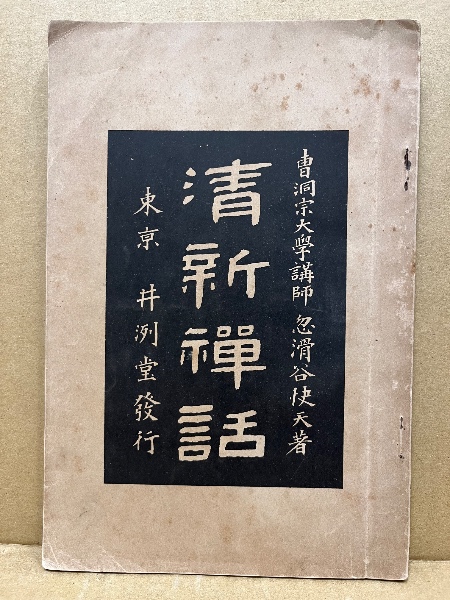 曹洞宗大學講師 忽滑谷快天著
清新禪話
東京 井洌堂發行